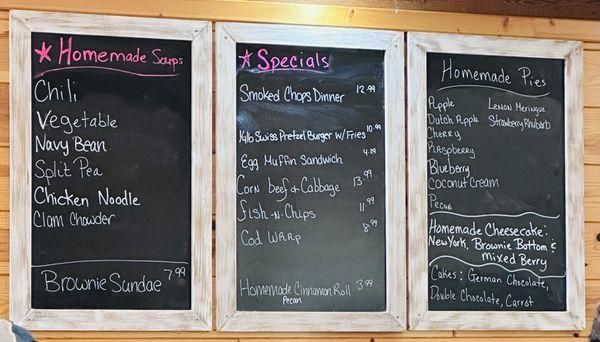 Homemade Soups
Chili
Vegetable
Navy Bean
Split Pea
Chicken Noodle
Clam Chowder
Brownie Sundae 7.99
Specials
Smoked Chops Dinner 12.99
Swiss Pretzel Burger w/ Fries 10.99
Egg Muffin Sandwich 4.29
Corn beef & Cabbage 13.99
Fish-n-Chips 11.99
Cod Wrap 8.99
Homemade Cinnamon Roll 3.99
Pecan
Homemade Pies
Apple
Dutch Apple
Cherry
Raspberry
Blueberry
Coconut Cream
Pecan
Lemon Meringue
Strawberry Rhubarb
Homemade Cheesecake:
New York, Brownie Bottom &
Mixed Berry
Cakes: German Chocolate,
Double Chocolate, Carrot